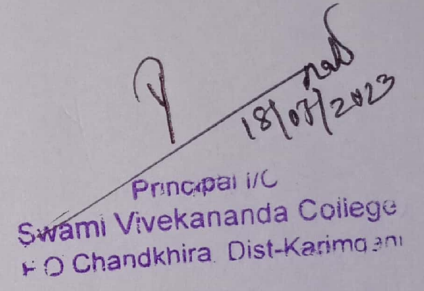 18/07/2023
Principal i/C
Swami Vivekananda College
P O Chandkhira Dist-Karimganj